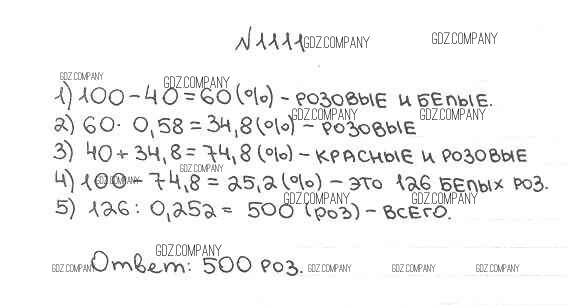 N 1111 GDZ.COMPANY GDZ.COMPANY
GDZ.COMPANY GDZ.COMPANY
1) 100 - 40 = 60 (%) - РОЗОВЫЕ И БЕЛЫЕ.
GDZ.COMPANY GDZ.COMPANY
2) 60 · 0,58 = 34,8 (%) - РОЗОВЫЕ
3) 40 + 34,8 = 74,8 (%) - КРАСНЫЕ И РОЗОВЫЕ
GDZ.COMPANY GDZ.COMPANY
4) 100 - 74,8 = 25,2 (%) - ЭТО 126 БЕЛЫХ РОЗ.
GDZ.COMPANY GDZ.COMPANY
5) 126 : 0,252 = 500 (РОЗ) - ВСЕГО.
GDZ.COMPANY
Ответ: 500 РОЗ.
GDZ.COMPANY GDZ.COMPANY GDZ.COMPANY GDZ.COMPANY